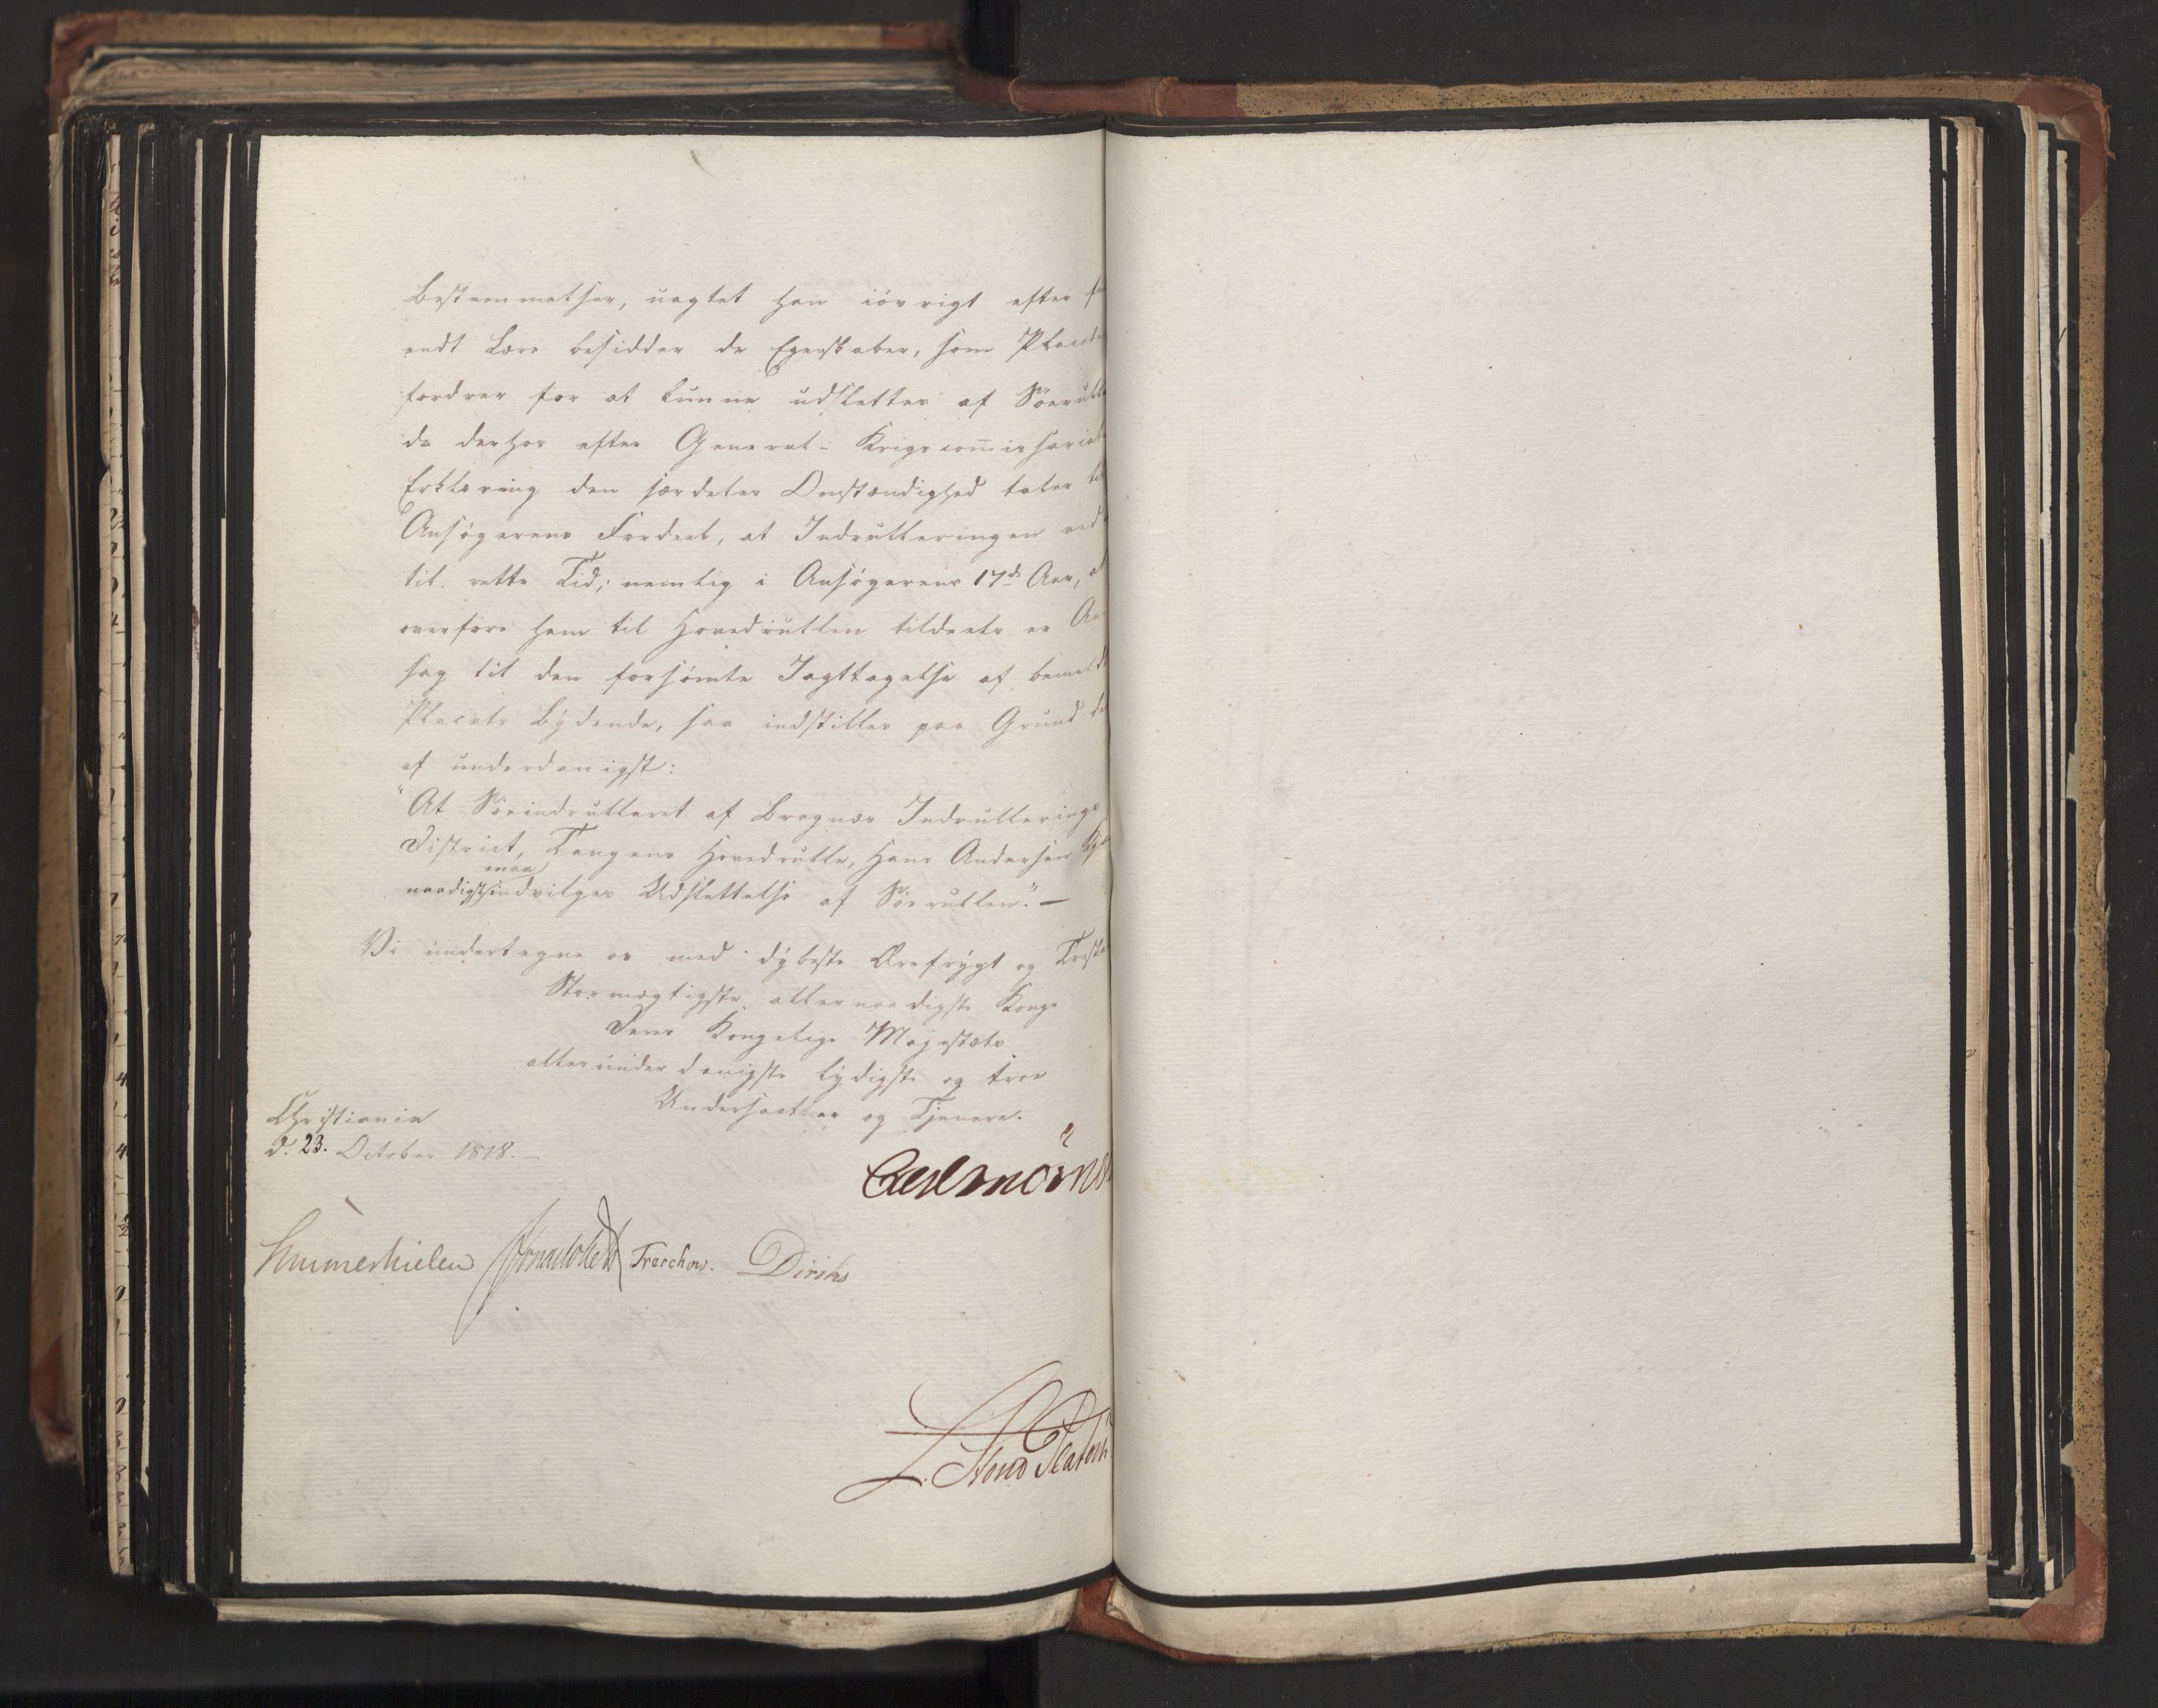 Bestemmelser, uagtet han iövrigt efter
endt Lære besidder de Egenskaber, som Placat
fordrer for at kunne udslettes af Söerull
da derhos efter General-Krigscom̄issariat
Erklæring den særdeles Omstændighed taler til
Ansögerens Fordeel, at Indrulleringen ved
til rette Tid, nemlig i Ansögerens 17de Aar, at
overföre ham til Hovedrullen tildeels er Aar
sag til den forsömte Iagttagelse af bemeldte
Placats Bydende, saa indstilles paa Grund der
af underdanigst:
"At Söeindrulleret af Bragnæs Indrullerings
District, Tangens Hovedrulle, Hans Andersen
maa
naadigst indvilges Udslettelse af Söerullen." —
Vi undertegne os med dybeste Ærefrygt og Troskab
Stormægtigste, allernaadigste Konge
Deres Kongelige Majestæts
allerunderdanigste lydigste og troe
Undersaatter og Tjenere.
Christiania
d. 23. October 1818. —
Carl Mörner
Hummerhielen Treschow. Diriks
L. Stoud Platou